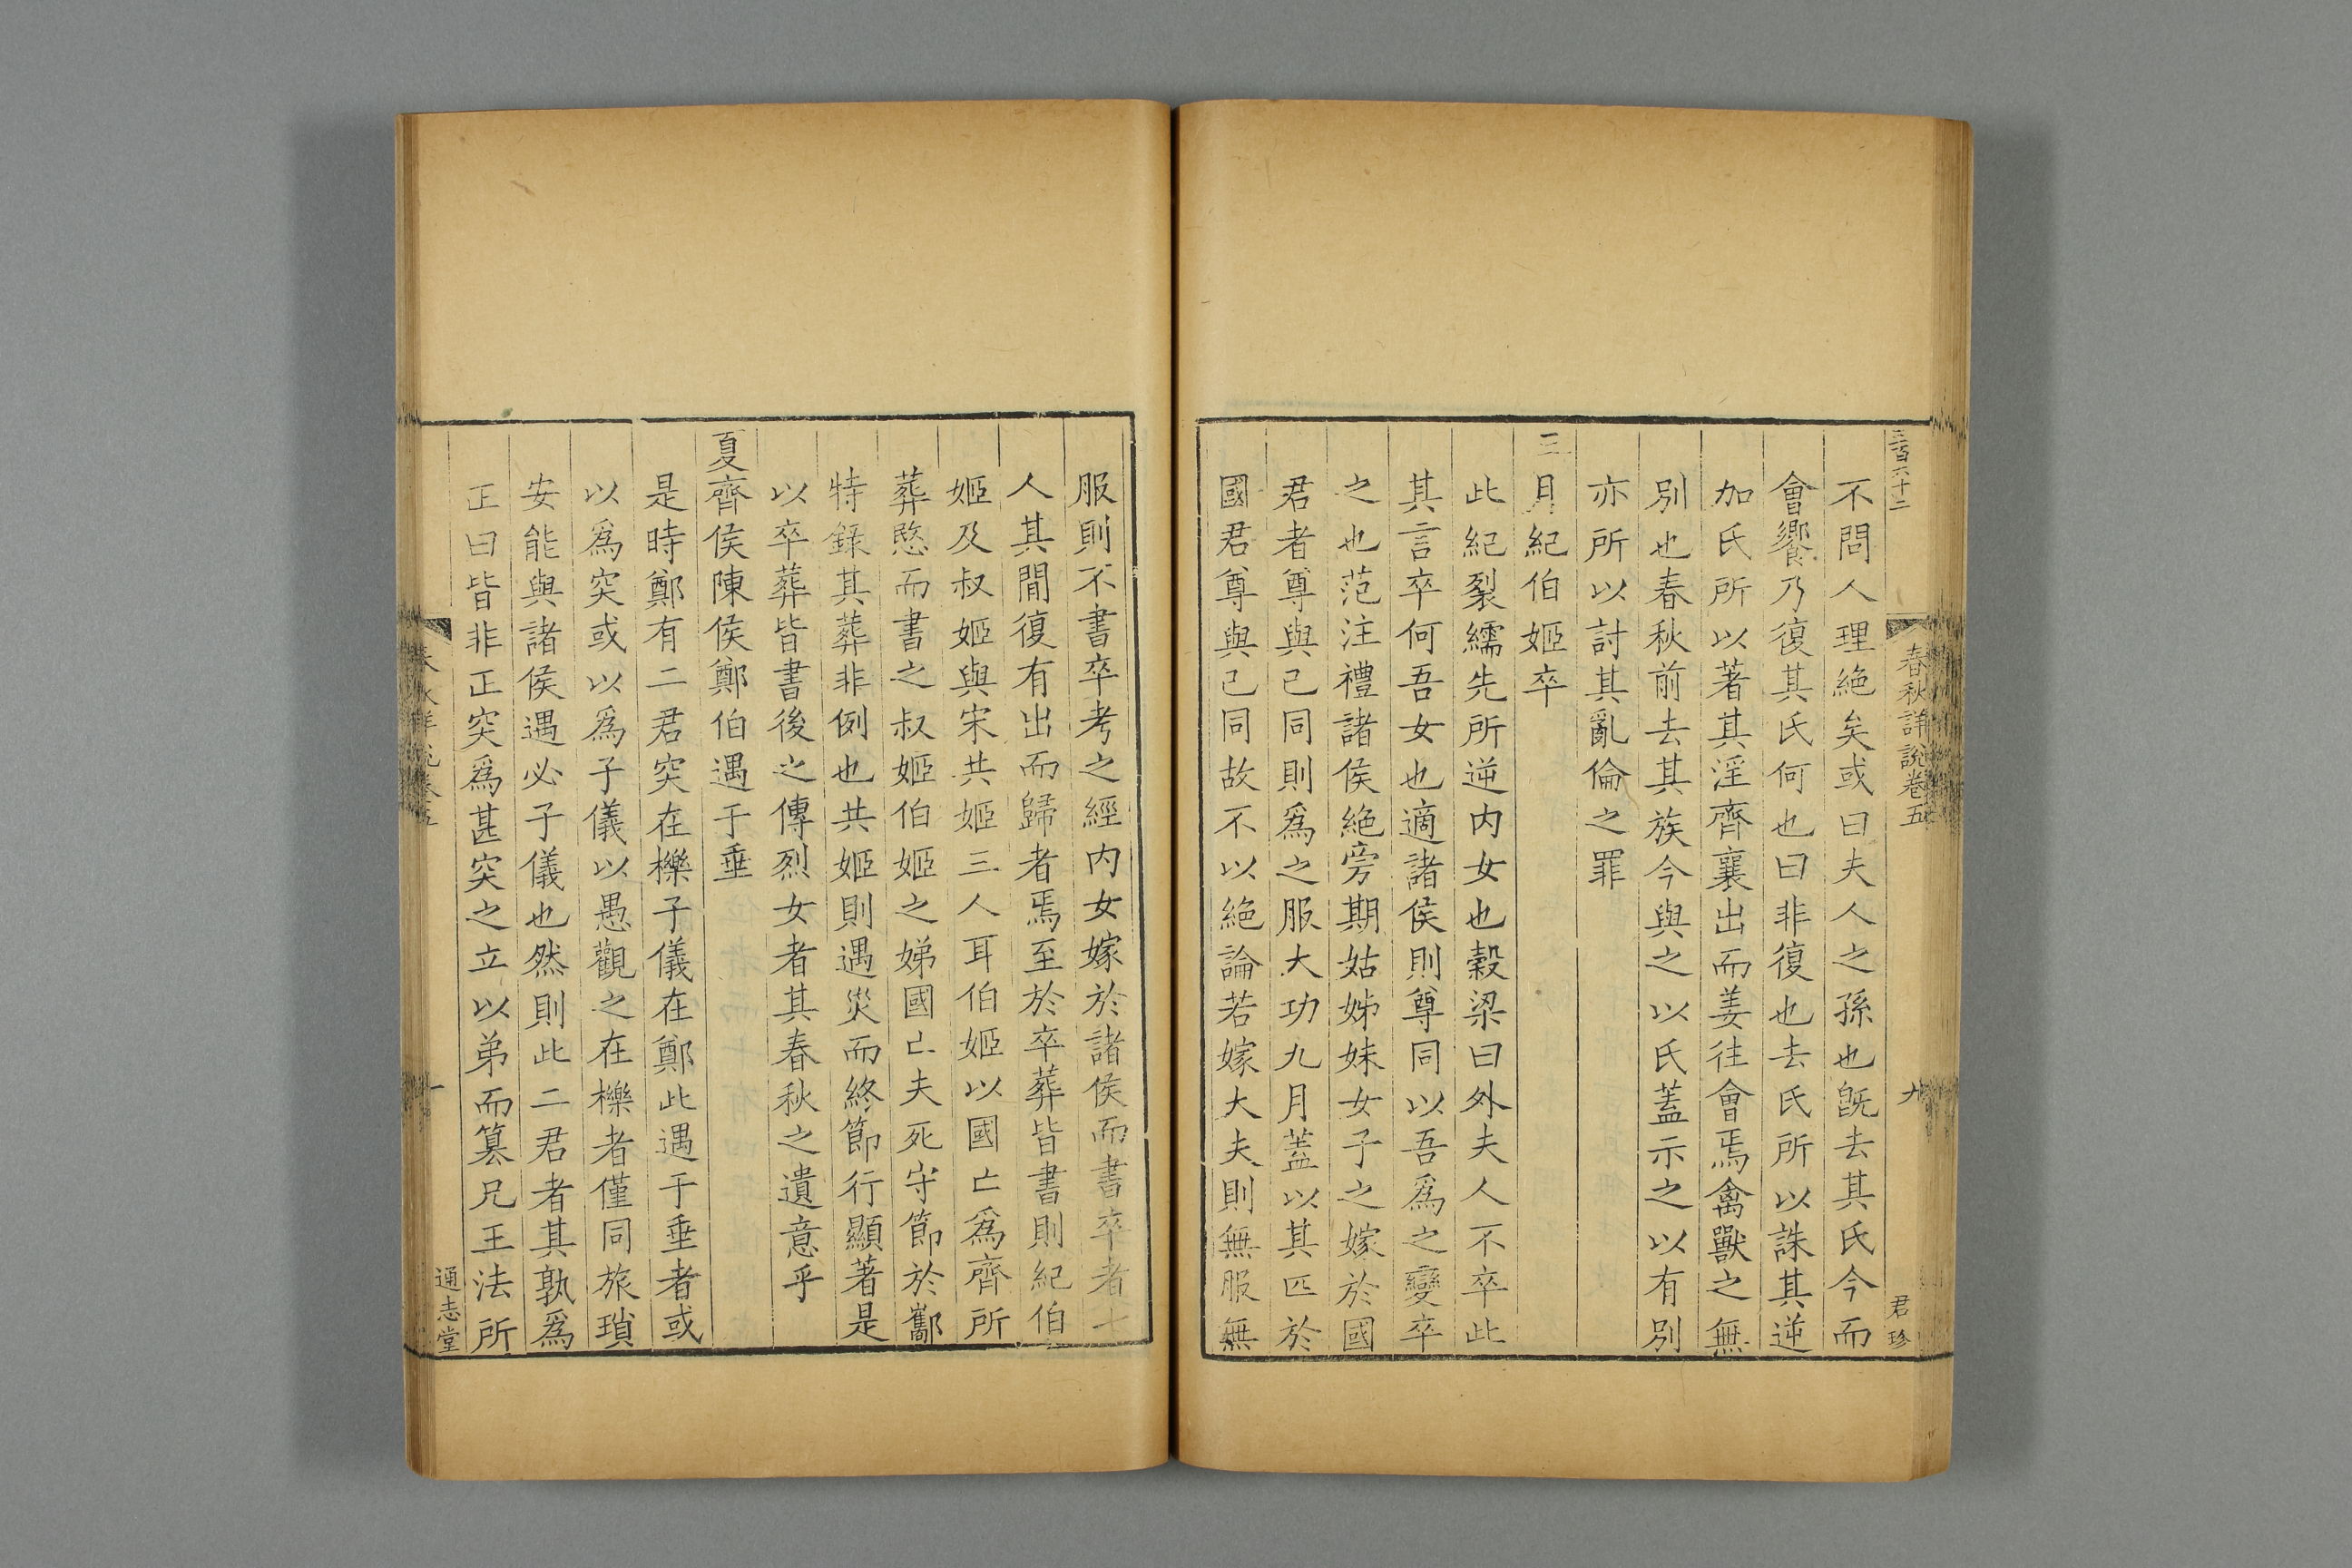 三百六十二
春秋詳說卷五
九
君珍
不問人理絶矣或曰夫人之孫也旣去其氏今而
會饗乃復其氏何也曰非復也去氏所以誅其逆
加氏所以著其淫齊襄出而姜往會焉禽獸之無
别也春秋前去其族今與之以氏蓋示之以有别
亦所以討其亂倫之罪
三月紀伯姬卒
此紀裂繻先所逆内女也穀梁曰外夫人不卒此
其言卒何吾女也適諸侯則尊同以吾爲之變卒
之也范注禮諸侯絶旁期姑姊妹女子之嫁於國
君者尊與己同則爲之服大功九月蓋以其匹於
國君尊與己同故不以絶論若嫁大夫則無服無
服則不書卒考之經内女嫁於諸侯而書卒者七
人其間復有出而歸者焉至於卒葬皆書則紀伯
姬及叔姬與宋共姬三人耳伯姬以國亡爲齊所
葬愍而書之叔姬伯姬之娣國亡夫死守節於酅
特錄其葬非例也共姬則遇災而終節行顯著是
以卒葬皆書後之傳烈女者其春秋之遺意乎
夏齊侯陳侯鄭伯遇于垂
是時鄭有二君突在櫟子儀在鄭此遇于垂者或
以爲突或以爲子儀以愚觀之在櫟者僅同旅瑣
安能與諸侯遇必子儀也然則此二君者其孰爲
正曰皆非正突爲甚突之立以弟而篡兄王法所
通志堂